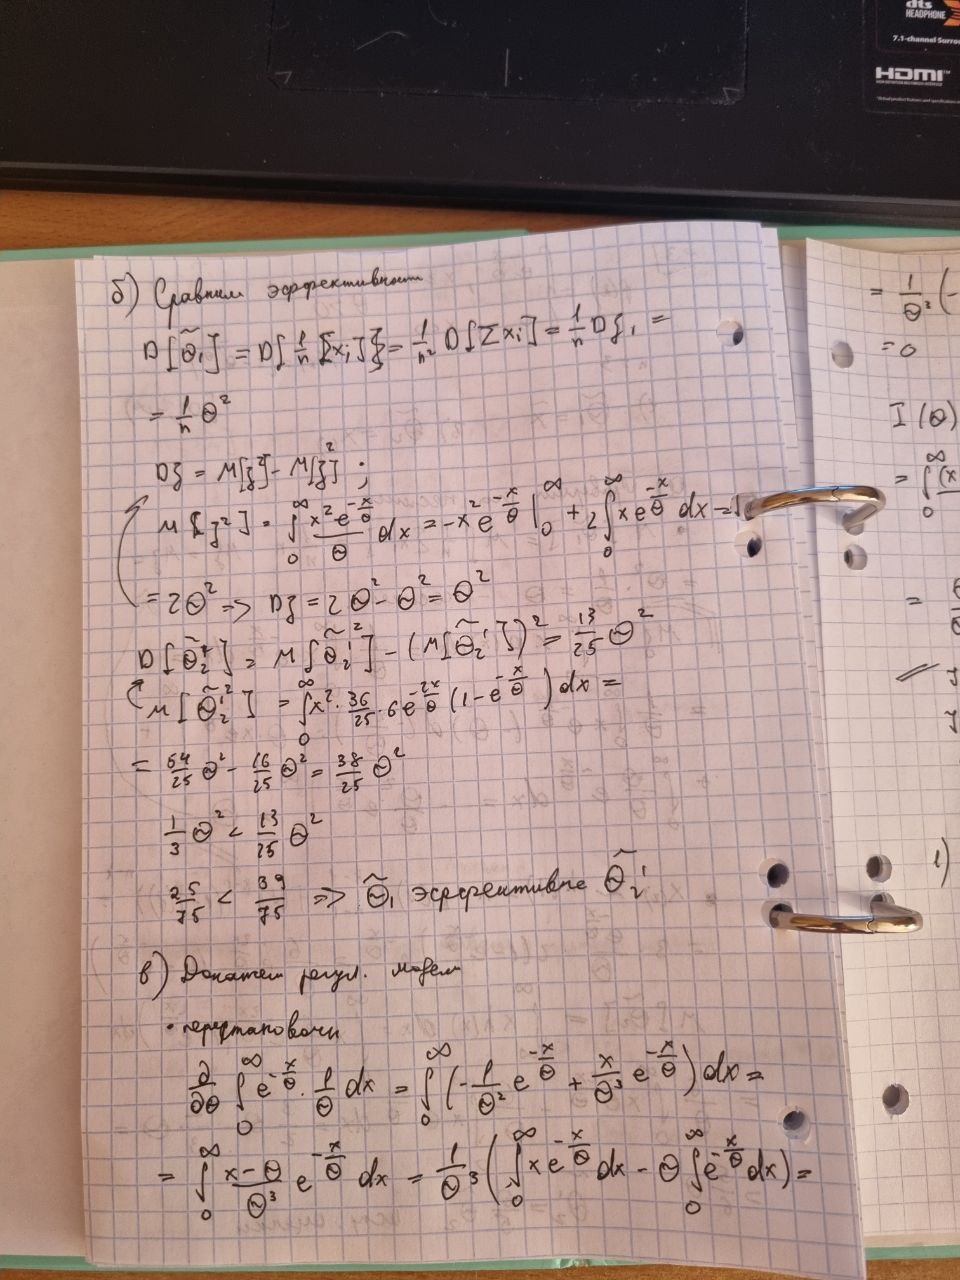 dts
HEADPHONE
7.1-channel Surro
HDMI™
б) Сравним эффективност
D[θ̃₁] = D[1/n Σxᵢ] = 1/n² D[Σxᵢ] = 1/n Dξ₁ =
= 1/n θ²
Dξ = M[ξ²] - M[ξ]² ;
M[ξ²] = ∫₀^∞ x² e^(-x/θ)/θ dx = -x² e^(-x/θ) |₀^∞ + 2∫₀^∞ x e^(-x/θ) dx =
= 2θ² => Dξ = 2θ² - θ² = θ²
D[θ̃₂'] = M[θ̃₂'²] - (M[θ̃₂'])² = 13/25 θ²
M[θ̃₂'²] = ∫₀^∞ x² · 36/25 · 6e^(-2x/θ) (1 - e^(-x/θ)) dx =
= 54/25 θ² - 16/25 θ² = 38/25 θ²
1/3 θ² < 13/25 θ²
25/75 < 39/75 => θ̃₁ эффективне θ̃₂'
в) Докажем регул. модели
• перестановочн
∂/∂θ ∫₀^∞ e^(-x/θ) · 1/θ dx = ∫₀^∞ (-1/θ² e^(-x/θ) + x/θ³ e^(-x/θ)) dx =
= ∫₀^∞ (x-θ)/θ³ e^(-x/θ) dx = 1/θ³ (∫₀^∞ x e^(-x/θ) dx - θ ∫₀^∞ e^(-x/θ) dx) =
= 1/θ³ (-
= 0
I(θ)
= ∫₀^∞ (x
=
1)